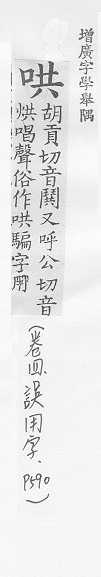 增廣字學舉隅
哄
胡貢切音鬨又呼公切音
烘唱聲俗作哄騙字用
(卷四、誤用字、P590)